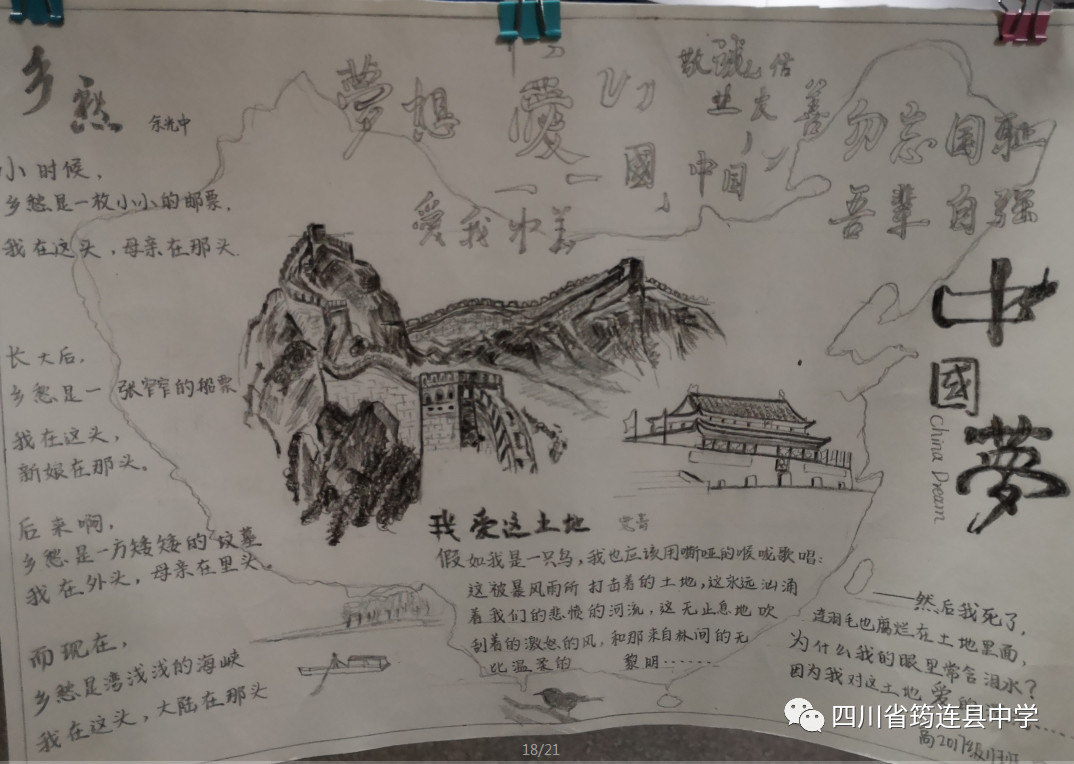 乡愁
余光中
小时候，
乡愁是一枚小小的邮票，
我在这头，母亲在那头．
长大后，
乡愁是一张窄窄的船票
我在这头，
新娘在那头。
后来啊，
乡愁是一方矮矮的坟墓
我在外头，母亲在里头。
而现在，
乡愁是湾浅浅的海峡
我在这头，大陆在那头
夢想
愛
國
爱我
敬诚信
善
中国
勿忘国耻
吾辈自强
中國夢
China Dream
我爱这土地
假如我是一只鸟，我也应该用嘶哑的喉咙歌唱：
这被暴风雨所打击着的土地，这永远汹涌
着我们的悲愤的河流，这无止息地吹
刮着的激怒的风，和那来自林间的无
比温柔的黎明……
——然后我死了，
连羽毛也腐烂在土地里面，
为什么我的眼里常含泪水？
因为我对这土地爱的
高2017级
四川省筠连县中学
18/21